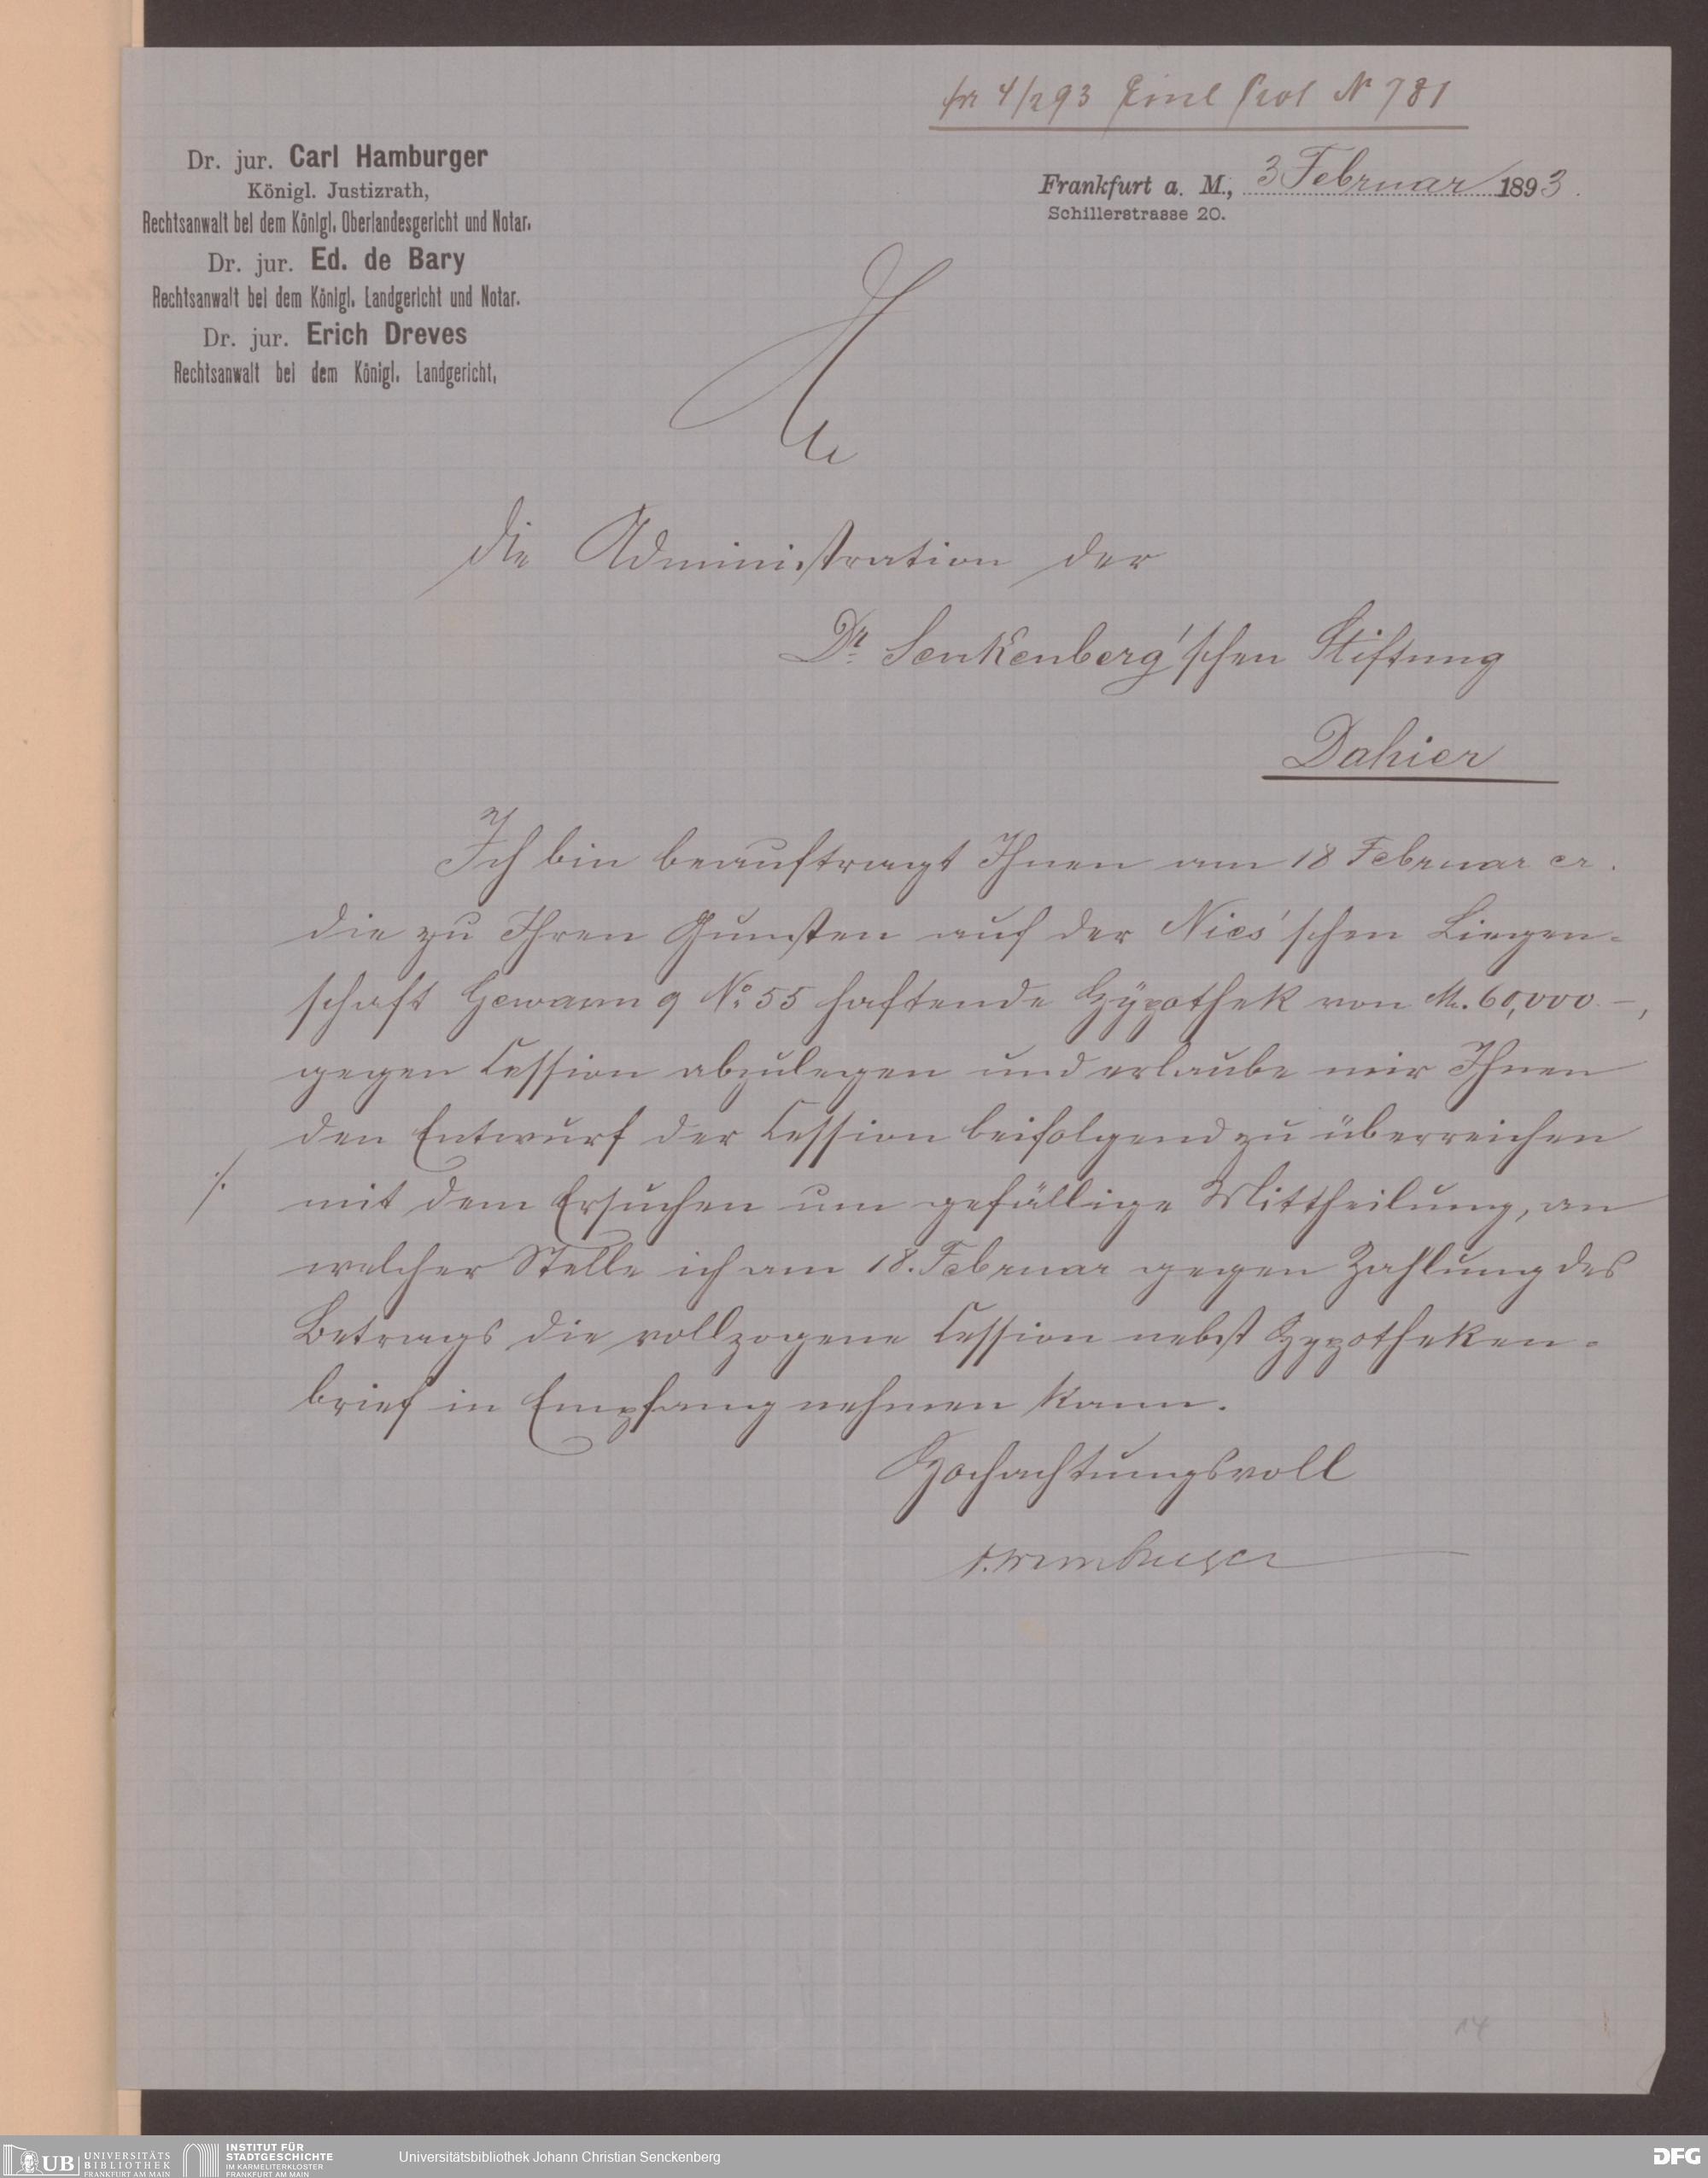 pr 4/2 93 Einl Prot № 781
Dr. jur. Carl Hamburger
Königl. Justizrath,
Rechtsanwalt bei dem Königl. Oberlandesgericht und Notar.
Dr. jur. Ed. de Bary
Rechtsanwalt bei dem Königl. Landgericht und Notar.
Dr. jur. Erich Dreves
Rechtsanwalt bei dem Königl. Landgericht.
Frankfurt a. M., 3 Februar 1893.
Schillerstrasse 20.
An
die Administration der
Dr Senkenberg'schen Stiftung
Dahier
Ich bin beauftragt Ihnen am 18 Februar cr.
die zu Ihren Gunsten auf der Nies'schen Liegen-
schaft Gewann 9 No. 55 haftende Hypothek von M. 60,000.–,
gegen Cession abzulegen und erlaube mir Ihnen
den Entwurf der Cession beifolgend zu überreichen
./. mit dem Ersuchen um gefällige Mittheilung, an
welcher Stelle ich am 18. Februar gegen Zahlung des
Betrags die vollzogene Cession nebst Hypotheken-
brief in Empfang nehmen kann.
Hochachtungsvoll
Hamburger
14
UB UNIVERSITÄTS
BIBLIOTHEK
FRANKFURT AM MAIN
INSTITUT FÜR
STADTGESCHICHTE
IM KARMELITERKLOSTER
FRANKFURT AM MAIN
Universitätsbibliothek Johann Christian Senckenberg
DFG